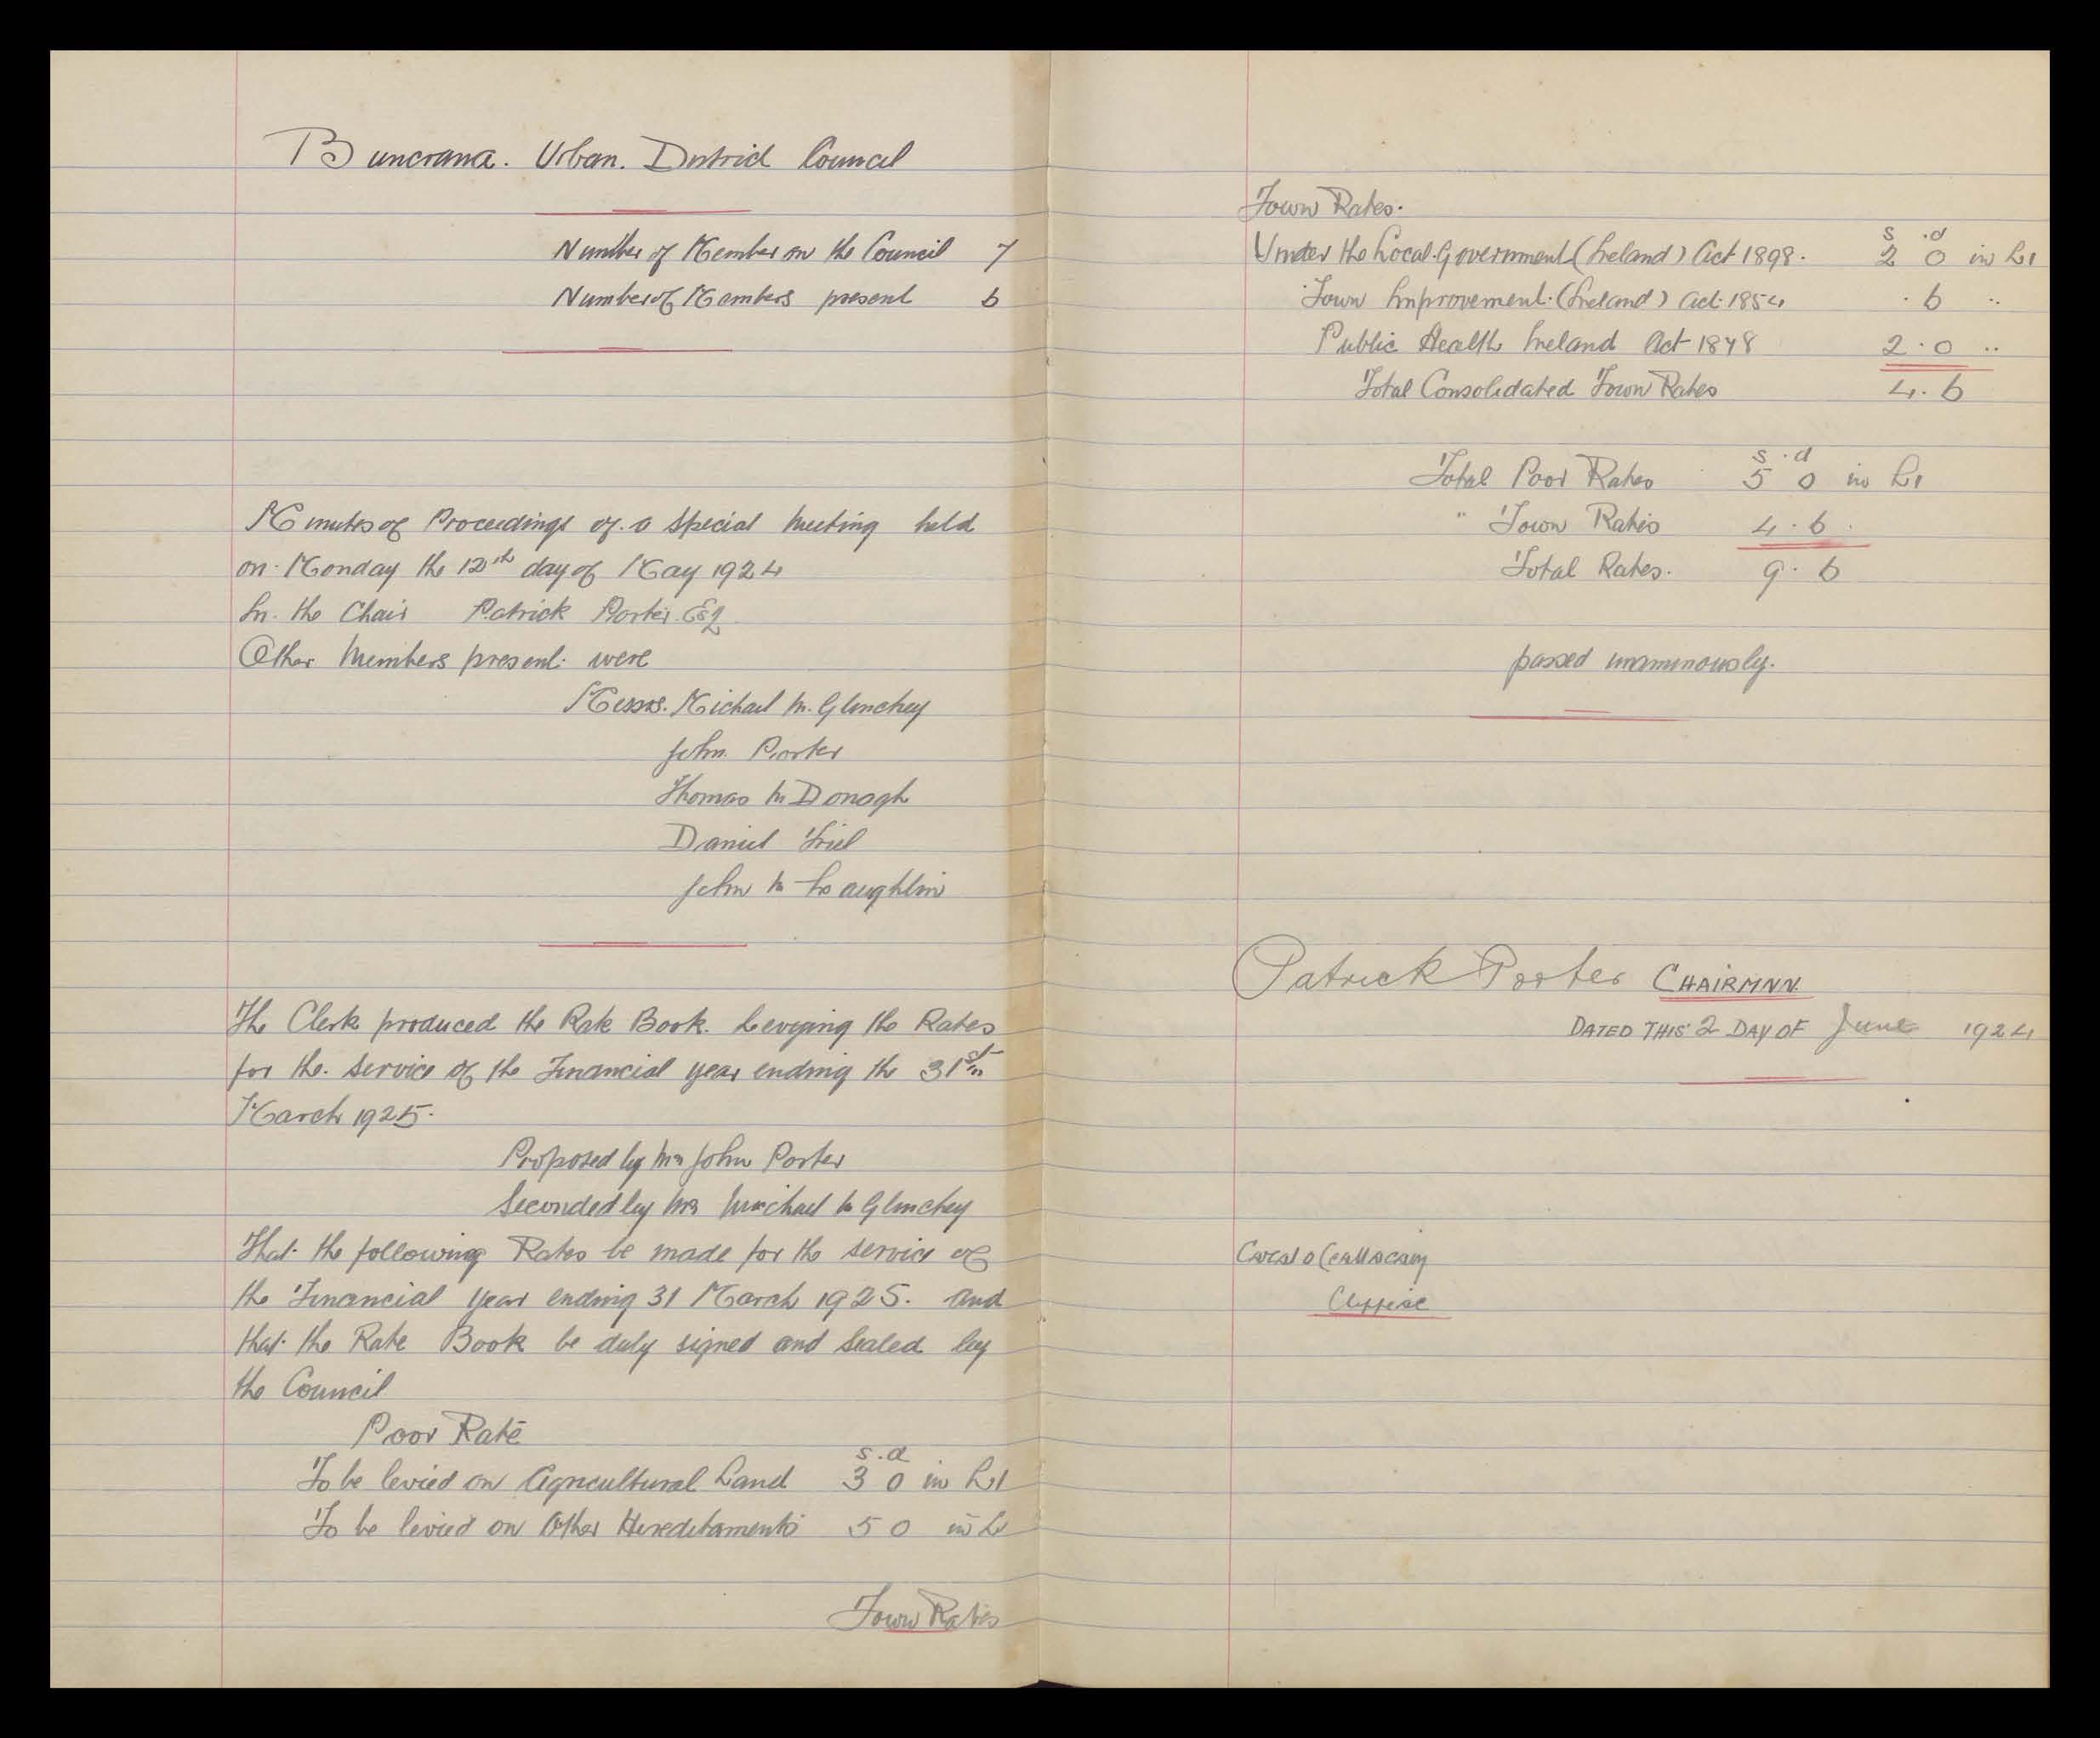 Buncrana. Urban. District Council
Number of Member on the Council 7
Number of Members present 6
Minutes of Proceedings of a Special Meeting held
on Monday the 12th day of May 1924
In. the Chair Patrick Porter. Esq.
Other Members present were
Messrs. Michael Mc Glinchey
John Porter
Thomas Mc Donagh
Daniel Friel
John Mc Laughlin
The Clerk produced the Rate Book. Levying the Rates
for the service of the Financial year ending the 31st
March 1925.
Proposed by Mr John Porter
Seconded by Mr Michael Mc Glinchey
That the following Rates be made for the service of
the Financial year ending 31 March 1925. and
that the Rate Book be duly signed and Sealed by
the Council
Poor Rate
s. d
To be levied on Agricultural Land 3 0 in £1
To be levied on Other Hereditaments 5 0 in £1
Town Rates
Town Rates.
s .d
Under the Local Government (Ireland) Act 1898. 2 0 in £1
Town Improvement. (Ireland) Act. 1854 . 6 ..
Public Health Ireland Act 1878 2 . 0 ..
Total Consolidated Town Rates 4. 6
s . d
Total Poor Rates 5 0 in £1
" Town Rates 4 . 6 .
Total Rates. 9. 6
passed unaminously.
Patrick Porter CHAIRMAN.
DATED THIS 2 DAY OF June 1924